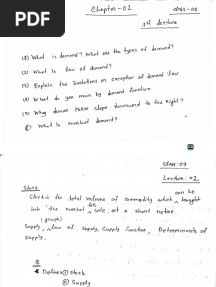 PDF
Chapter-02
class-08
1st lecture
(1) What is demand? What are the types of demand?
(2) What is law of demand?
(3) Explain the limitations or exception of demand law
(4) What do you mean by demand function
(5) Why deman curve slope downward to the right?
(6) What is market demand?
class: 09
Lecture: #2
Stock
Stock is the total volume of commodity which can be bought
into the market for sale, at a short notice.
(graph)
Supply, law of supply, Supply function, Determinants of
supply.
Q
* Define: ① Stock
② Supply